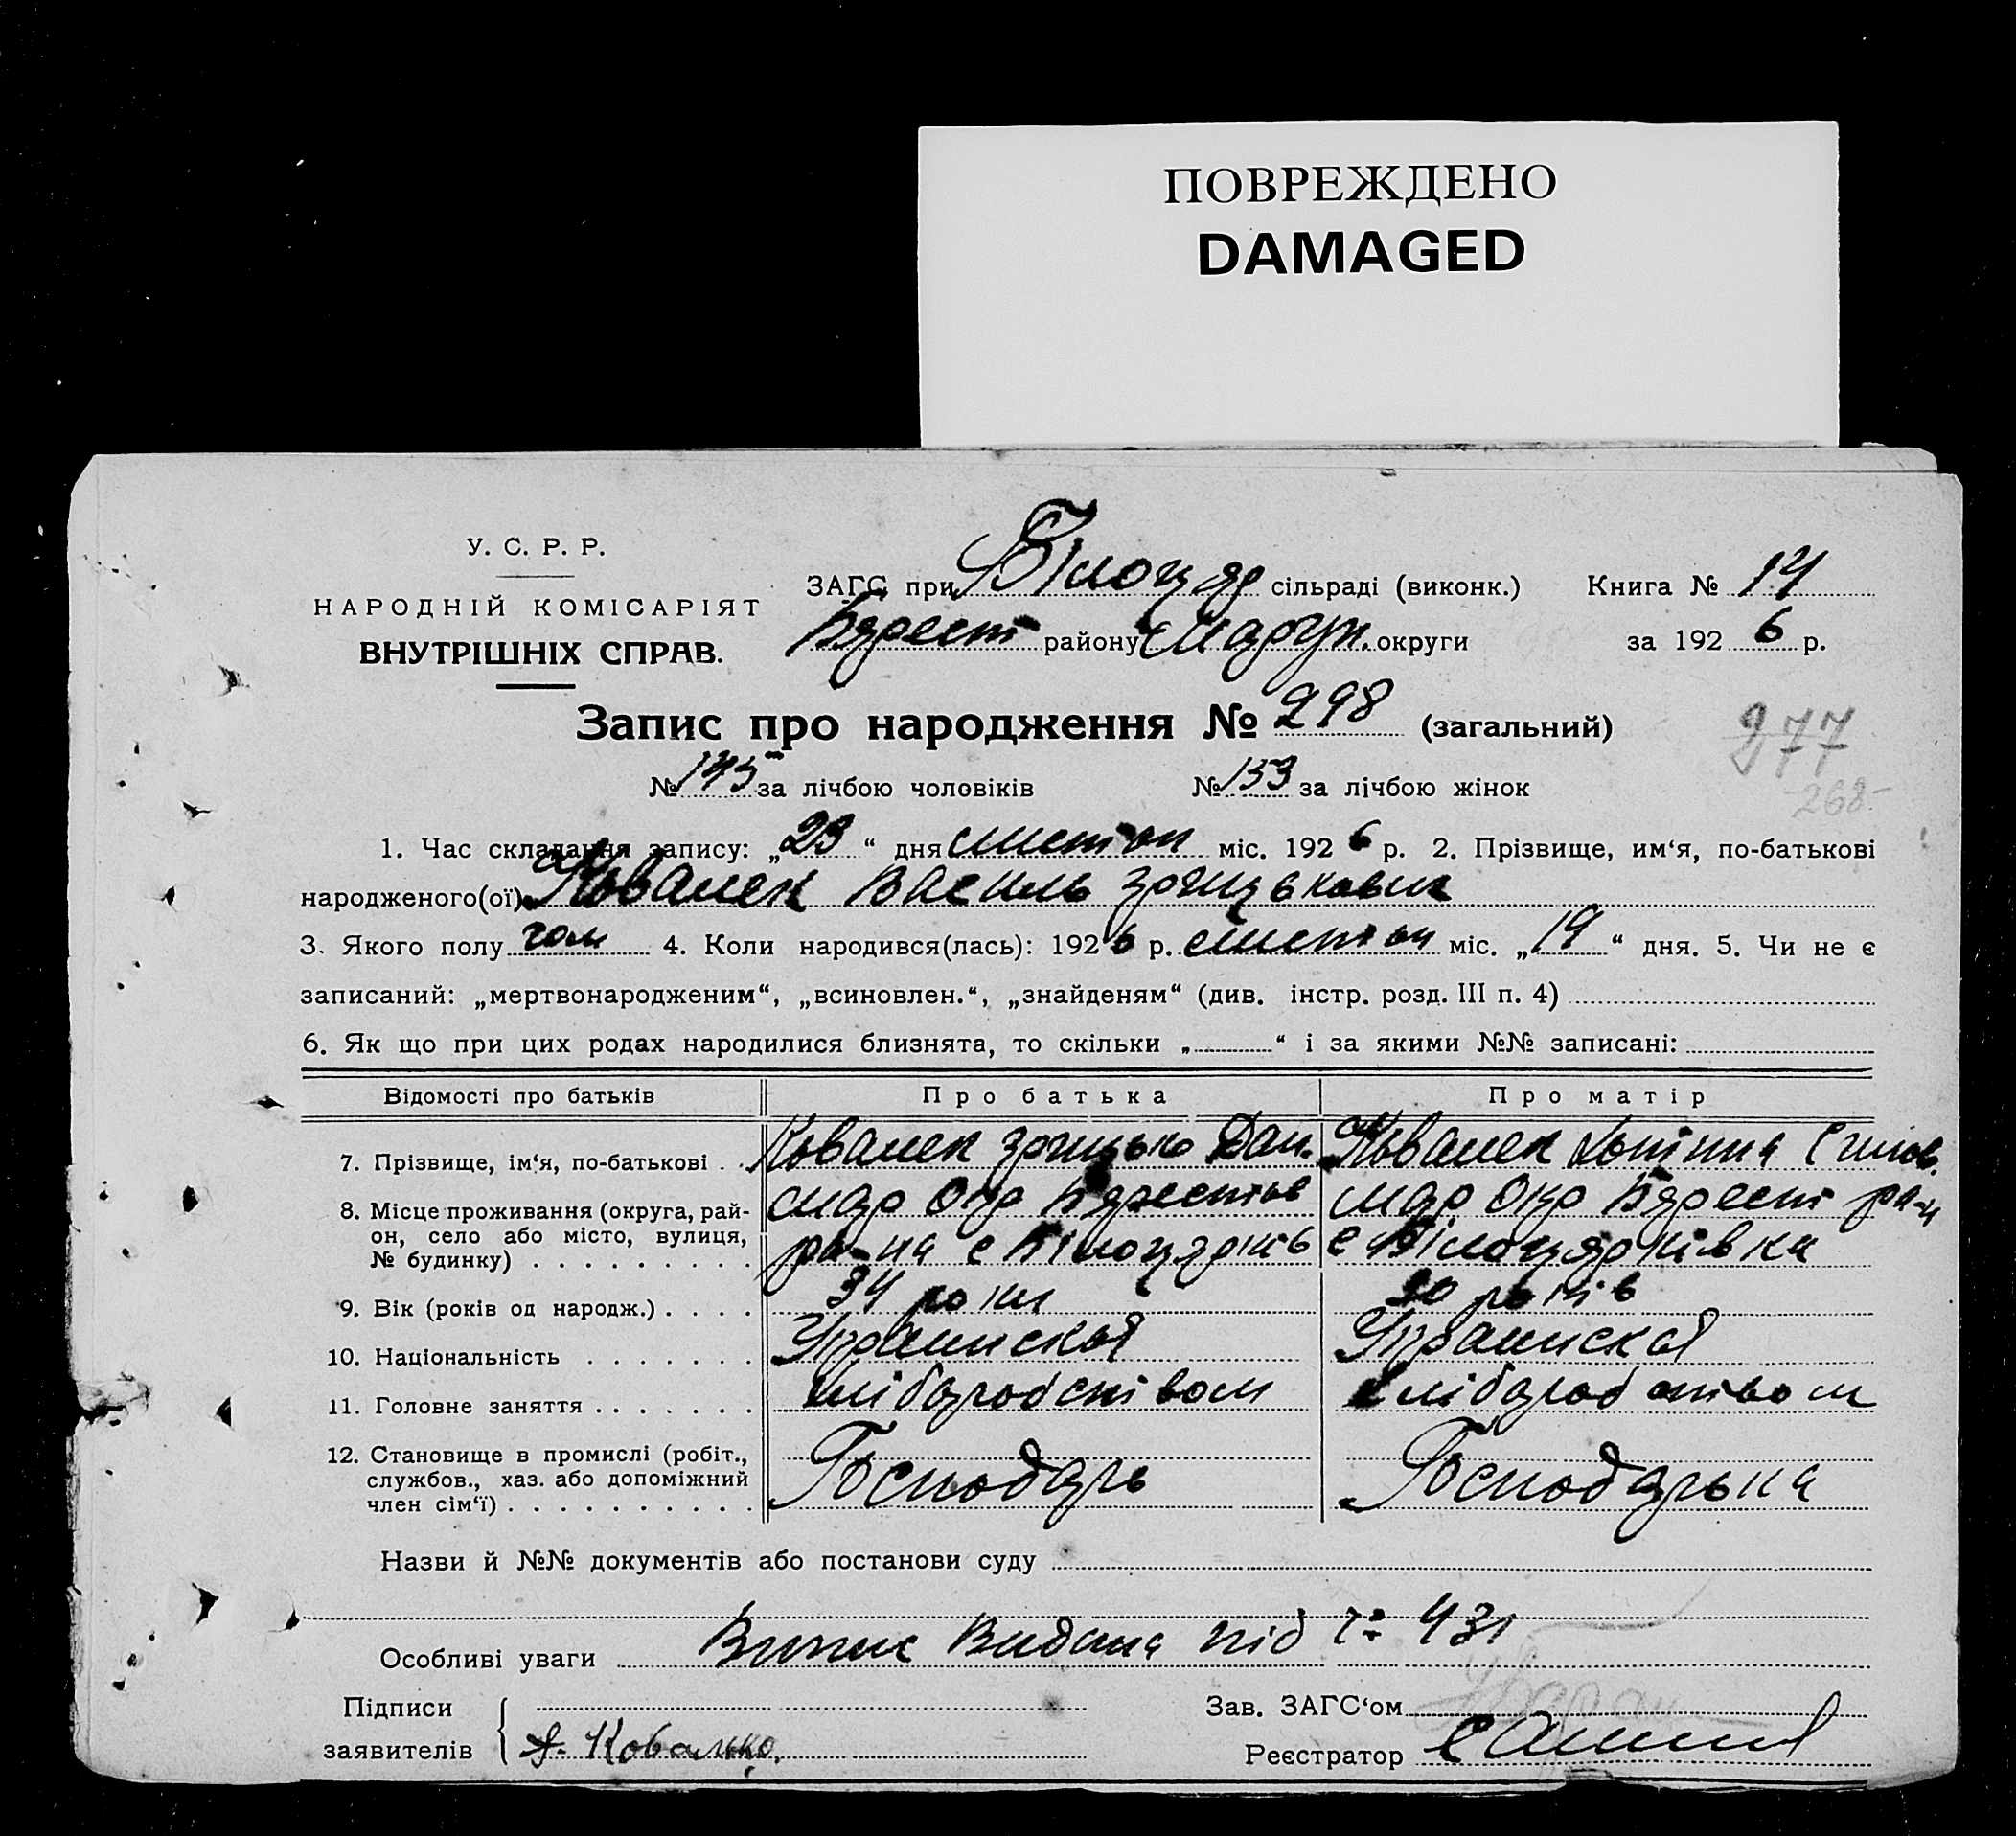 ПОВРЕЖДЕНО
DAMAGED
У. С. Р. Р.
НАРОДНІЙ КОМІСАРІЯТ
ВНУТРІШНІХ СПРАВ.
ЗАГС при Білоцер сільраді (виконк.) Книга № 14
району Мариуп. округи за 1926 р.
Запис про народження № 298 (загальний)
277
№ 145 за лічбою чоловіків № 153 за лічбою жінок
268
1. Час складання запису: „23“ дня листоп міс. 1926 р. 2. Прізвище, им‘я, по-батькові
народженого(ої) Ковалек Василь Грицькович
3. Якого полу чол 4. Коли народився(лась): 1926 р. листоп міс. „19“ дня. 5. Чи не є
записаний: „мертвонародженим“, „всиновлен.“, „знайденям“ (див. інстр. розд. III п. 4)
6. Як що при цих родах народилися близнята, то скільки „ “ і за якими №№ записані:
Відомості про батьків Про батька Про матір
7. Прізвище, ім‘я, по-батькові Ковалек Грицько Дан. Ковалек
8. Місце проживання (округа, рай-он, село або місто, вулиця, № будинку) Мар Окр ра-на с Білоцерків Мар Окр ра-н с Білоцерківка
9. Вік (років од народж.) 34 роки 30 років
10. Національність Украинской Украинской
11. Головне заняття хліборобством хліборобством
12. Становище в промислі (робіт., службов., хаз. або допоміжний член сім‘ї) Господарь Господарька
Назви й №№ документів або постанови суду
Особливі уваги Випис Видана під № 431
Підписи
заявителів Ковалько.
Зав. ЗАГС‘ом
Реєстратор